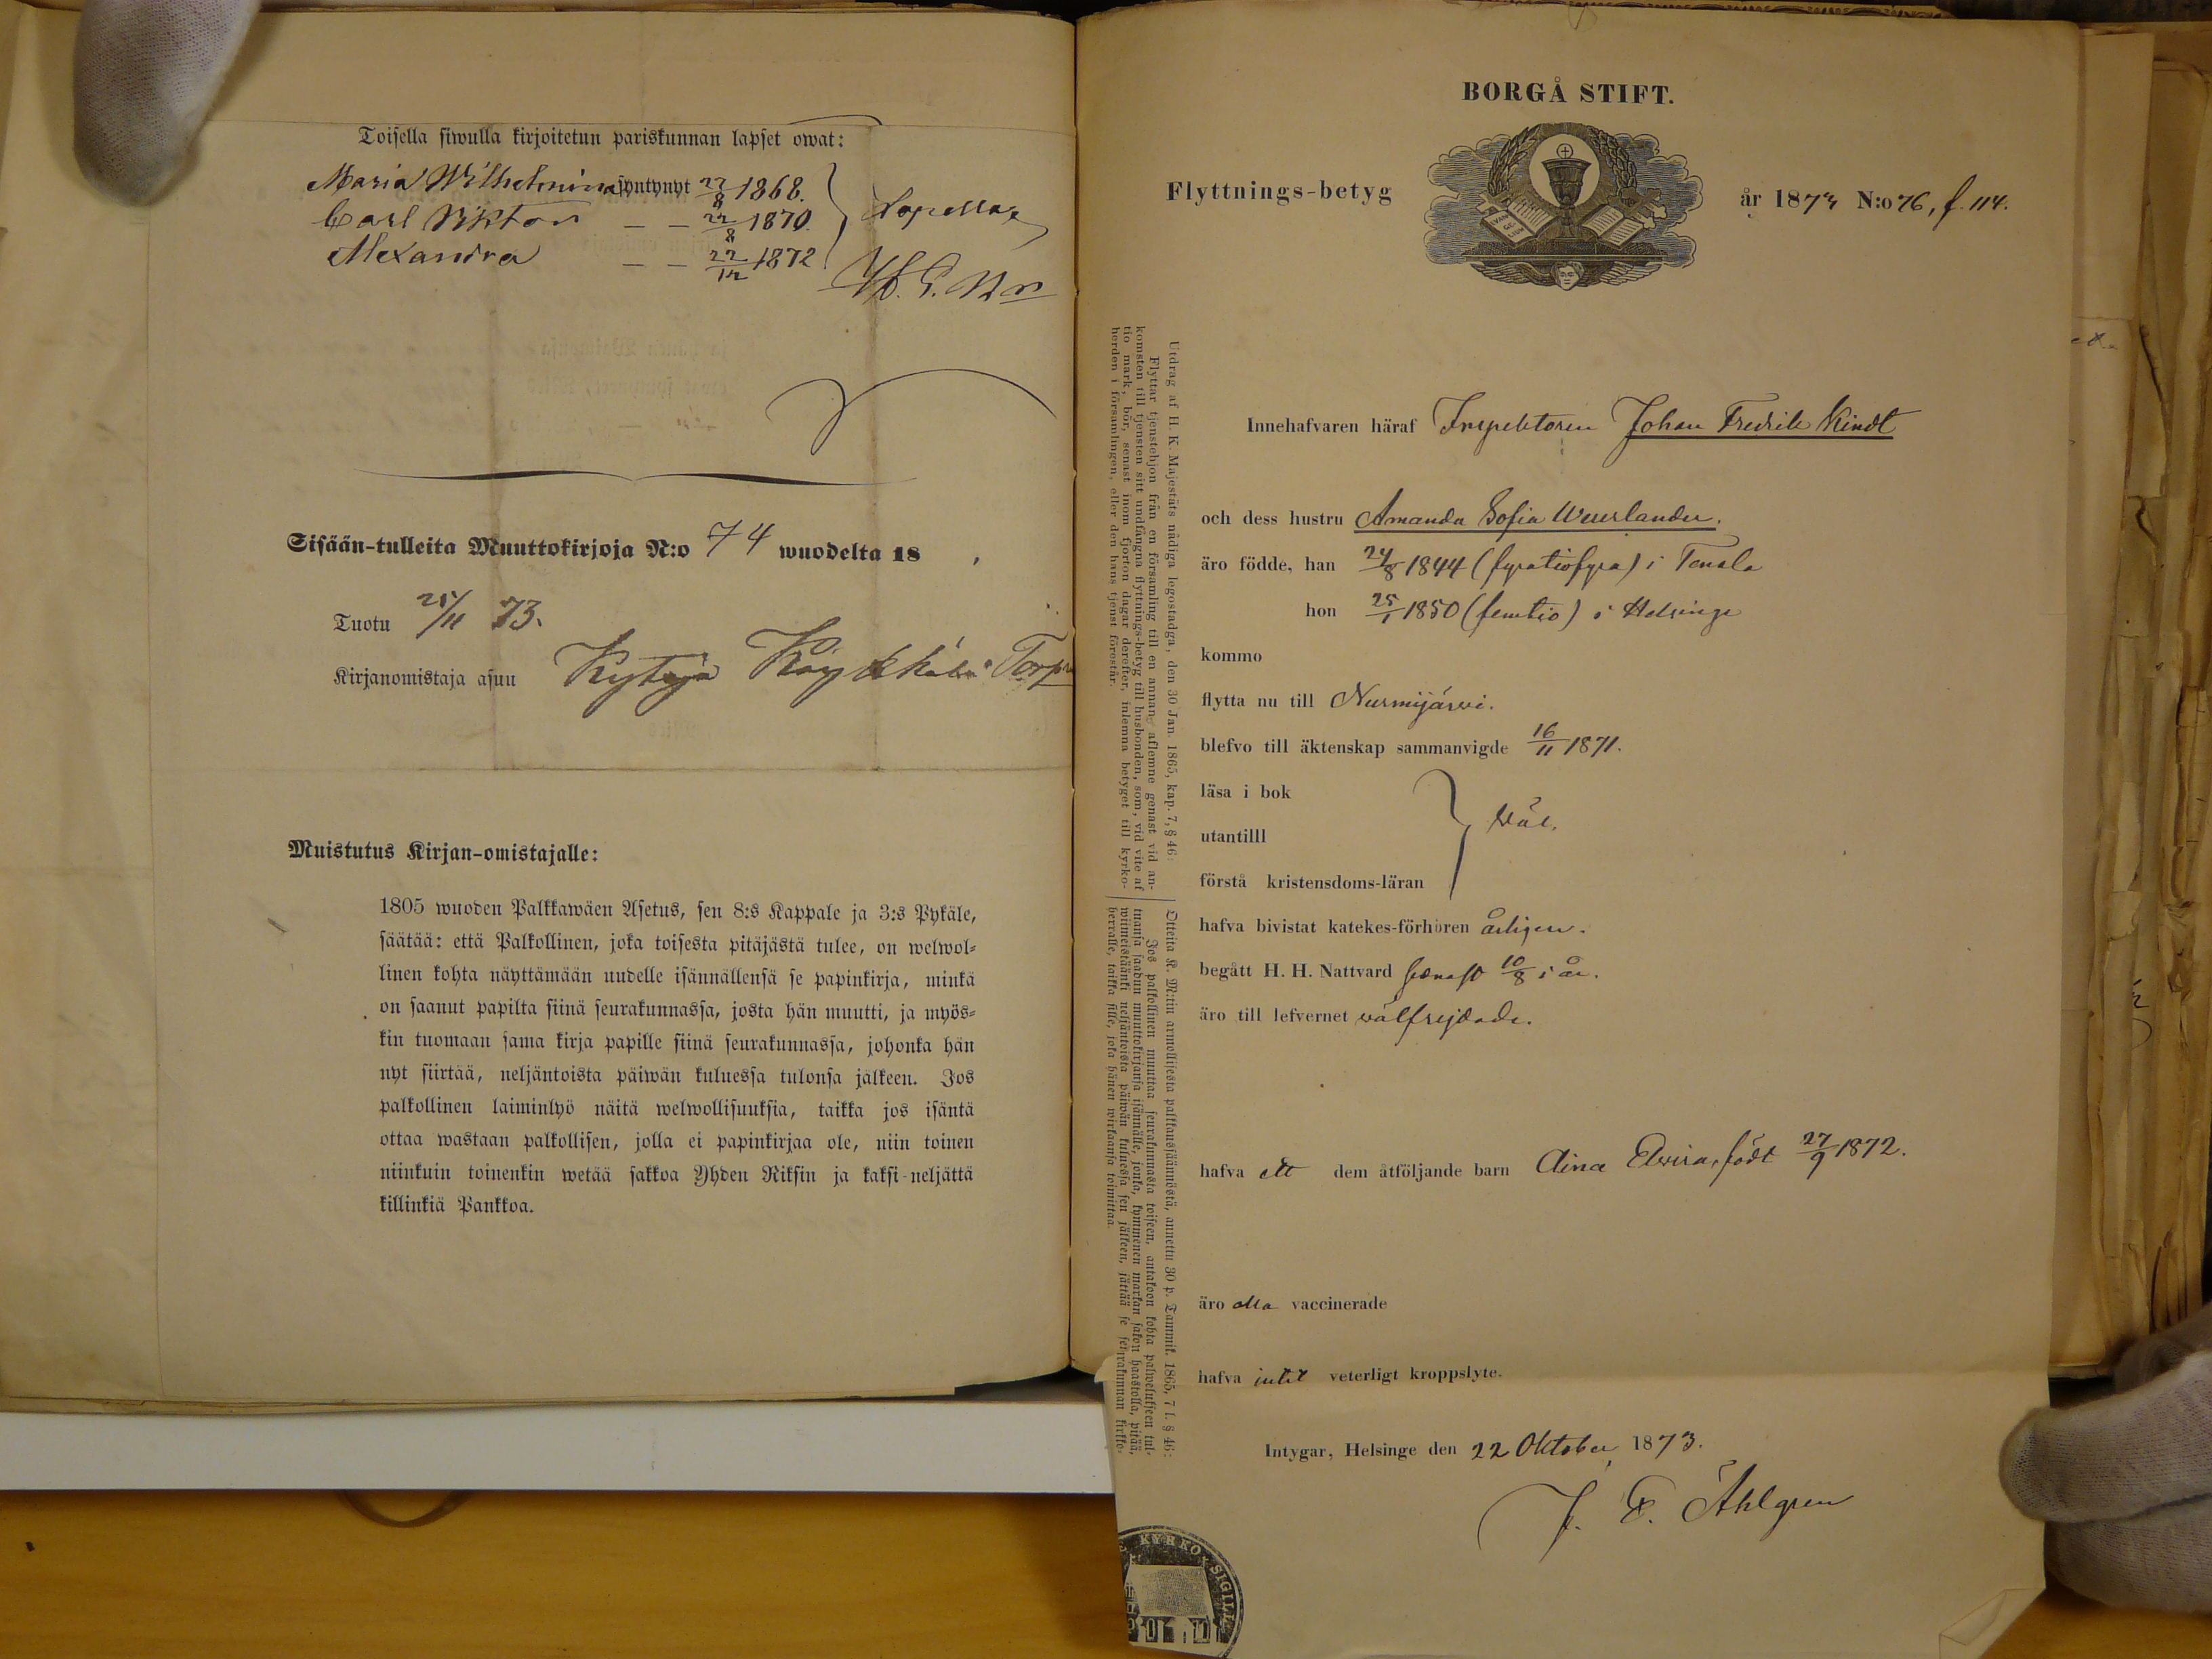 Toisella siwulla kirjoitetun pariskunnan lapset owat:
Maria Wilhelmina syntynyt 22/8 1868.
Carl Viktor — — 22/8 1870.
Alexandra — — 22/12 1872
Sisään-tulleita Muuttokirjoja N:o 74 wuodelta 18 .
Tuotu 25/11 73.
Kirjanomistaja asuu Kytäjä
Muistutus Kirjan-omistajalle:
1805 wuoden Palkkawäen Asetus, sen 8:s Kappale ja 3:s Pykäle,
säätää: että Palkollinen, joka toisesta pitäjästä tulee, on welwol-
linen kohta näyttämään uudelle isännällensä se papinkirja, minkä
on saanut papilta siinä seurakunnassa, josta hän muutti, ja myös-
kin tuomaan sama kirja papille siinä seurakunnassa, johonka hän
nyt siirtää, neljäntoista päiwän kuluessa tulonsa jälkeen. Jos
palkollinen laiminlyö näitä welwollisuuksia, taikka jos isäntä
ottaa wastaan palkollisen, jolla ei papinkirjaa ole, niin toinen
niinkuin toinenkin wetää sakkoa Yhden Riksin ja kaksi-neljättä
killinkiä Pankkoa.
BORGÅ STIFT.
Flyttnings-betyg
EVAN
GE
LIUM
år 1873 N:o 76, f. 114.
Utdrag af H. K. Majestäts nådiga legostadga, den 30 Jan. 1865, kap. 7, § 46:
Flyttar tjenstehjon från en församling till en annan, aflemne genast vid an-
komsten till tjensten sitt undfångna flyttnings-betyg till husbonden, som, vid vite af
tio mark, bör, senast inom fjorton dagar derefter, inlemna betyget till kyrko-
herden i församlingen, eller den hans tjenst förestår.
Otteita K. M:tin armollisesta palkkaussäännöstä, annettu 30 p. Tammik. 1865, 7 l. § 46:
Jos palkollinen muuttaa seurakunnasta toiseen, antakoon kohta palwelukseen tul-
tuansa saadun muuttokirjansa isännälle, jonka, kymmenen markan sakon haastolla, pitää,
wiimeistäänki neljäntoista päiwän kuluessa sen jälkeen, jättää se seurakunnan kirkko-
herralle, taikka sille, joka hänen wirkaansa toimittaa.
Innehafvaren häraf Inspektoren Johan Fredrik Kindt
och dess hustru Amanda Sofia Weurlander.
äro födde, han 24/8 1844 (fyratiofyra) i Tenala
hon 25/1 1850 (femtio) i Helsinge
kommo
flytta nu till Nurmijärvi.
blefvo till äktenskap sammanvigde 16/11 1871.
läsa i bok
utantilll
väl.
förstå kristensdoms-läran
hafva bivistat katekes-förhören årligen.
begått H. H. Nattvard senast 10/8 i år.
äro till lefvernet välfrejdade.
hafva ett dem åtföljande barn Aina Elvira, född 27/9 1872.
äro alla vaccinerade
hafva intet veterligt kroppslyte.
Intygar, Helsinge den 22 Oktober 1873.
J. E. Åhlgren
KYRKO SIGILL